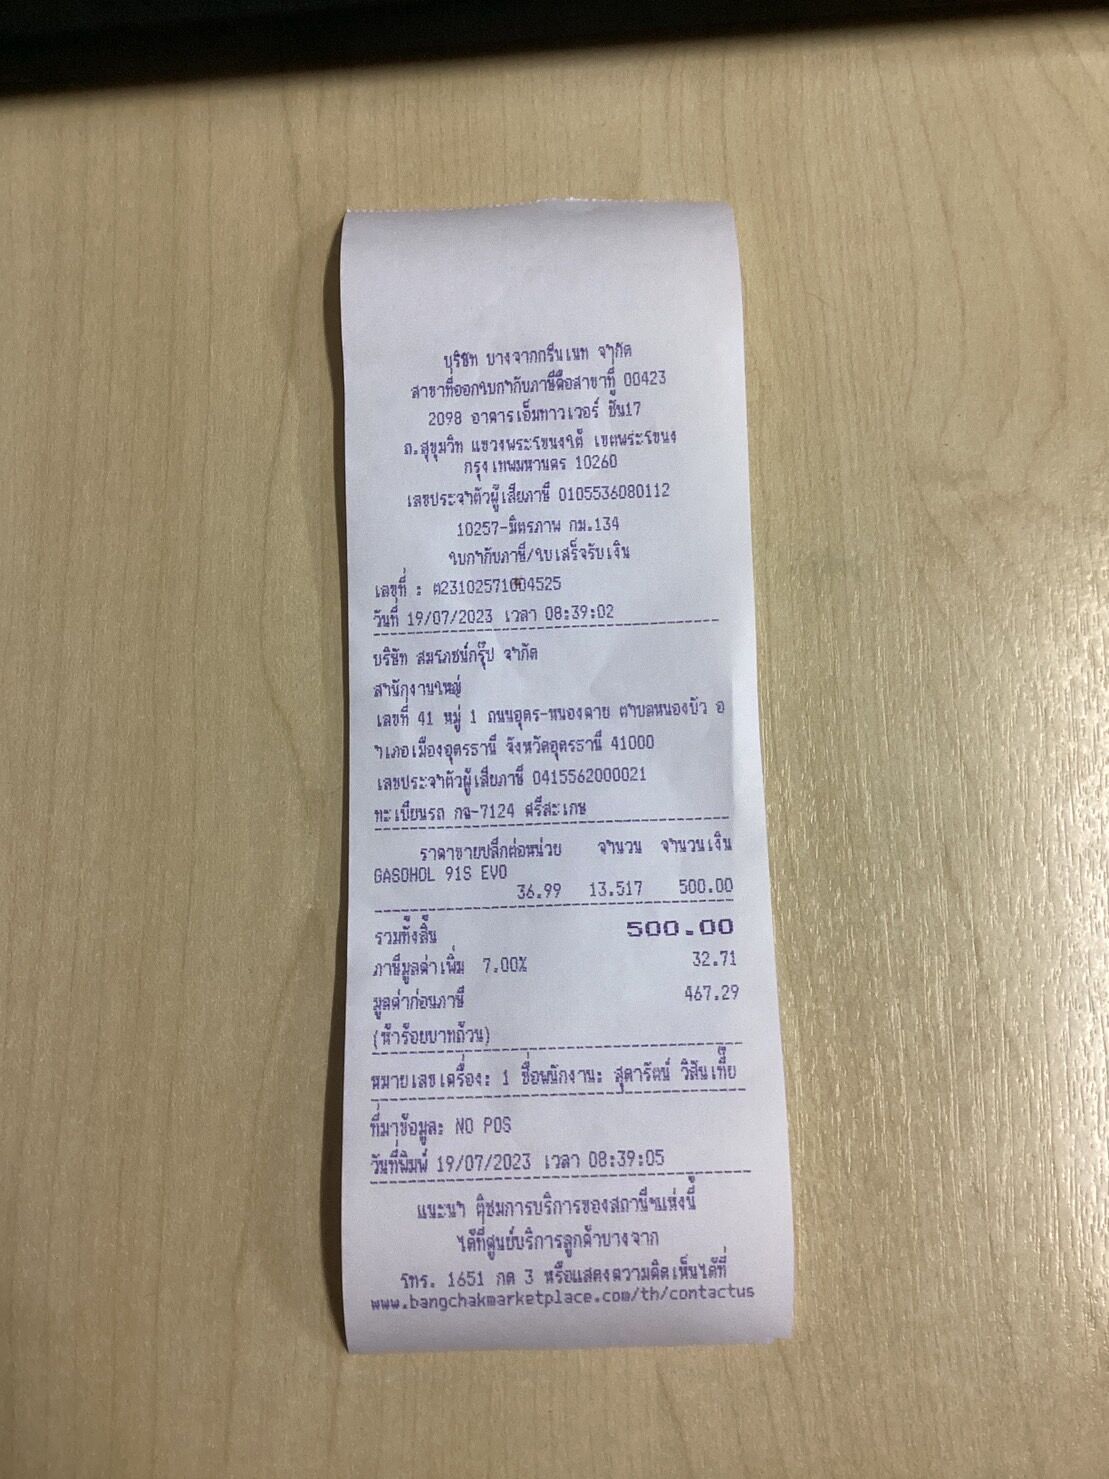 บริษัท บางจากกรีนเนท จำกัด
สาขาที่ออกใบกำกับภาษีคือสาขาที่ 00423
2098 อาคารเอ็มทาวเวอร์ ชั้น17
ถ.สุขุมวิท แขวงพระโขนงใต้ เขตพระโขนง
กรุงเทพมหานคร 10260
เลขประจำตัวผู้เสียภาษี 0105536080112
10257-มิตรภาพ กม.134
ใบกำกับภาษี/ใบเสร็จรับเงิน
เลขที่ : ต23102571004525
วันที่ 19/07/2023 เวลา 08:39:02
บริษัท สมโภชน์กรุ๊ป จำกัด
สำนักงานใหญ่
เลขที่ 41 หมู่ 1 ถนนอุดร-หนองคาย ตำบลหนองบัว อ
ำเภอเมืองอุดรธานี จังหวัดอุดรธานี 41000
เลขประจำตัวผู้เสียภาษี 0415562000021
ทะเบียนรถ กฉ-7124 ศรีสะเกษ
ราคาขายปลีกต่อหน่วย จำนวน จำนวนเงิน
GASOHOL 91S EVO
36.99 13.517 500.00
รวมทั้งสิ้น 500.00
ภาษีมูลค่าเพิ่ม 7.00% 32.71
มูลค่าก่อนภาษี 467.29
(ห้าร้อยบาทถ้วน)
หมายเลขเครื่อง: 1 ชื่อพนักงาน: สุดารัตน์ วิสันเที๊ย
ที่มาข้อมูล: NO POS
วันที่พิมพ์ 19/07/2023 เวลา 08:39:05
แนะนำ ติชมการบริการของสถานีฯแห่งนี้
ได้ที่ศูนย์บริการลูกค้าบางจาก
โทร. 1651 กด 3 หรือแสดงความคิดเห็นได้ที่
www.bangchakmarketplace.com/th/contactus